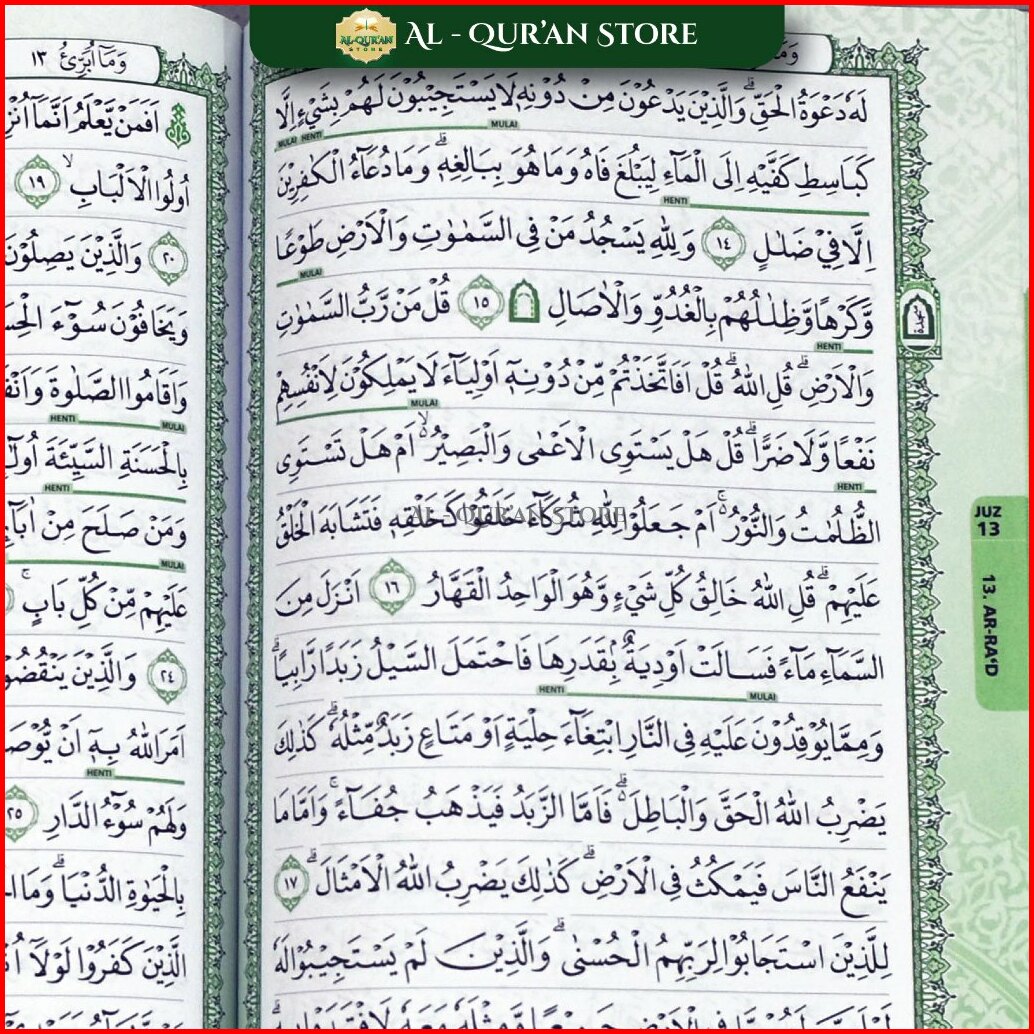 AL - QUR'AN STORE
AL-QUR'AN
STORE
لَهٗ دَعْوَةُ الْحَقِّۗ وَالَّذِيْنَ يَدْعُوْنَ مِنْ دُوْنِهٖ لَا يَسْتَجِيْبُوْنَ لَهُمْ بِشَيْءٍ اِلَّا
MULAI HENTI MULAI
كَبَاسِطِ كَفَّيْهِ اِلَى الْمَاۤءِ لِيَبْلُغَ فَاهُ وَمَا هُوَ بِبَالِغِهٖۗ وَمَا دُعَاۤءُ الْكٰفِرِيْنَ
HENTI
اِلَّا فِيْ ضَلٰلٍ ١٤ وَلِلّٰهِ يَسْجُدُ مَنْ فِى السَّمٰوٰتِ وَالْاَرْضِ طَوْعًا
MULAI
وَّكَرْهًا وَّظِلٰلُهُمْ بِالْغُدُوِّ وَالْاٰصَالِ ١٥ قُلْ مَنْ رَّبُّ السَّمٰوٰتِ
HENTI
وَالْاَرْضِۗ قُلِ اللّٰهُۗ قُلْ اَفَاتَّخَذْتُمْ مِّنْ دُوْنِهٖٓ اَوْلِيَاۤءَ لَا يَمْلِكُوْنَ لِاَنْفُسِهِمْ
MULAI
نَفْعًا وَّلَا ضَرًّاۗ قُلْ هَلْ يَسْتَوِى الْاَعْمٰى وَالْبَصِيْرُ ەۙ اَمْ هَلْ تَسْتَوِى
HENTI
الظُّلُمٰتُ وَالنُّوْرُ ەۚ اَمْ جَعَلُوْا لِلّٰهِ شُرَكَاۤءَ خَلَقُوْا كَخَلْقِهٖ فَتَشَابَهَ الْخَلْقُ
AL - QUR'AN STORE
عَلَيْهِمْۗ قُلِ اللّٰهُ خَالِقُ كُلِّ شَيْءٍ وَّهُوَ الْوَاحِدُ الْقَهَّارُ ١٦ اَنْزَلَ مِنَ
السَّمَاۤءِ مَاۤءً فَسَالَتْ اَوْدِيَةٌ ۢ بِقَدَرِهَا فَاحْتَمَلَ السَّيْلُ زَبَدًا رَّابِيًاۗ
HENTI MULAI
وَمِمَّا يُوْقِدُوْنَ عَلَيْهِ فِى النَّارِ ابْتِغَاۤءَ حِلْيَةٍ اَوْ مَتَاعٍ زَبَدٌ مِّثْلُهٗۗ كَذٰلِكَ
يَضْرِبُ اللّٰهُ الْحَقَّ وَالْبَاطِلَ ەۗ فَاَمَّا الزَّبَدُ فَيَذْهَبُ جُفَاۤءًۚ وَاَمَّا مَا
يَنْفَعُ النَّاسَ فَيَمْكُثُ فِى الْاَرْضِۗ كَذٰلِكَ يَضْرِبُ اللّٰهُ الْاَمْثَالَۗ ١٧
لِلَّذِيْنَ اسْتَجَابُوْا لِرَبِّهِمُ الْحُسْنٰىۗ وَالَّذِيْنَ لَمْ يَسْتَجِيْبُوْا لَهٗ
سجدة
JUZ
13
13. AR-RA'D
وَمَآ اُبَرِّئُ ١٣
اَفَمَنْ يَّعْلَمُ اَنَّمَآ
اُولُوا الْاَلْبَابِۙ ١٩
٢٠ وَالَّذِيْنَ يَصِلُوْنَ
وَيَخَافُوْنَ سُوْۤءَ
وَاَقَامُوا الصَّلٰوةَ
HENTI MULAI
بِالْحَسَنَةِ السَّيِّئَةَ
HENTI
وَمَنْ صَلَحَ مِنْ
MULAI
عَلَيْهِمْ مِّنْ كُلِّ بَابٍۚ
٢٤ وَالَّذِيْنَ
اَمَرَ اللّٰهُ بِهٖٓ اَنْ
HENTI
وَلَهُمْ سُوْۤءُ الدَّارِ ٢٥
بِالْحَيٰوةِ الدُّنْيَاۗ وَمَا
الَّذِيْنَ كَفَرُوْا لَوْلَآ